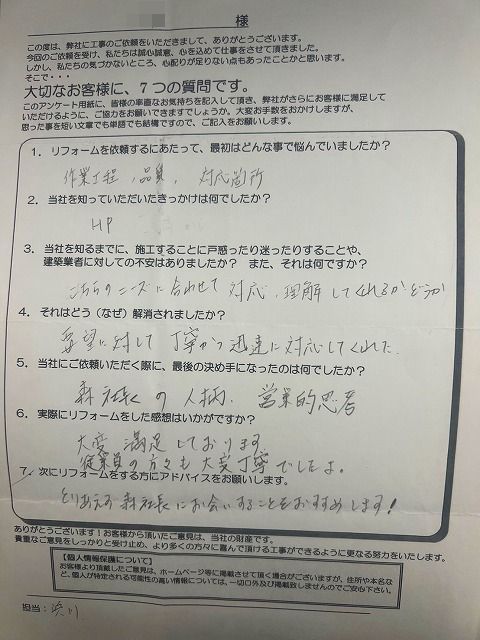 様
この度は、弊社に工事のご依頼をいただきまして、ありがとうございます。
今回のご依頼を受け、私たちは誠心誠意、心を込めて仕事をさせて頂きました。
しかし、私たちの気づかないところ、心配りが足りない点もあったことかと思います。
そこで・・・
大切なお客様に、7つの質問です。
このアンケート用紙に、皆様の率直なお気持ちを記入して頂き、弊社がさらにお客様に満足して
いただけるように、ご協力をお願いできますでしょうか。大変お手数をおかけしますが、
思った事を短い文章でも単語でも結構ですので、ご記入をお願いします。
1．リフォームを依頼するにあたって、最初はどんな事で悩んでいましたか？
作業工程、品質、対応箇所
2．当社を知っていただいたきっかけは何でしたか？
HP
3．当社を知るまでに、施工することに戸惑ったり迷ったりすることや、
建築業者に対しての不安はありましたか？ また、それは何ですか？
こちらのニーズに合わせて対応、理解してくれるかどうか
4．それはどう（なぜ）解消されましたか？
要望に対して丁寧かつ迅速に対応してくれた.
5．当社にご依頼いただく際に、最後の決め手になったのは何でしたか？
森社長の人柄、営業的思考
6．実際にリフォームをした感想はいかがですか？
大変満足しております
従業員の方々も大変丁寧でしたよ。
7．次にリフォームをする方にアドバイスをお願いします。
とりあえず森社長にお会いすることをおすすめします！
ありがとうございます！お客様から頂いたご意見は、当社の財産です。
貴重なご意見をしっかりと受け止め、より多くの方々に喜んで頂ける工事ができるように更なる努力をいたします。
【個人情報保護について】
お客様より頂戴したご意見は、ホームページ等に掲載させて頂く場合がございますが、住所や本名な
ど、個人が特定される可能性の高い情報については、一切口外及び掲載致しませんのでご安心下さい。
担当：渋川